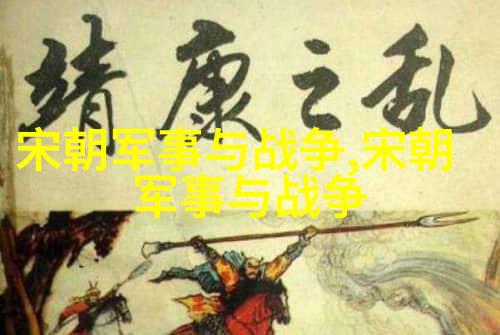 靖康之乱
宋朝军事与战争,宋朝
军事与战争